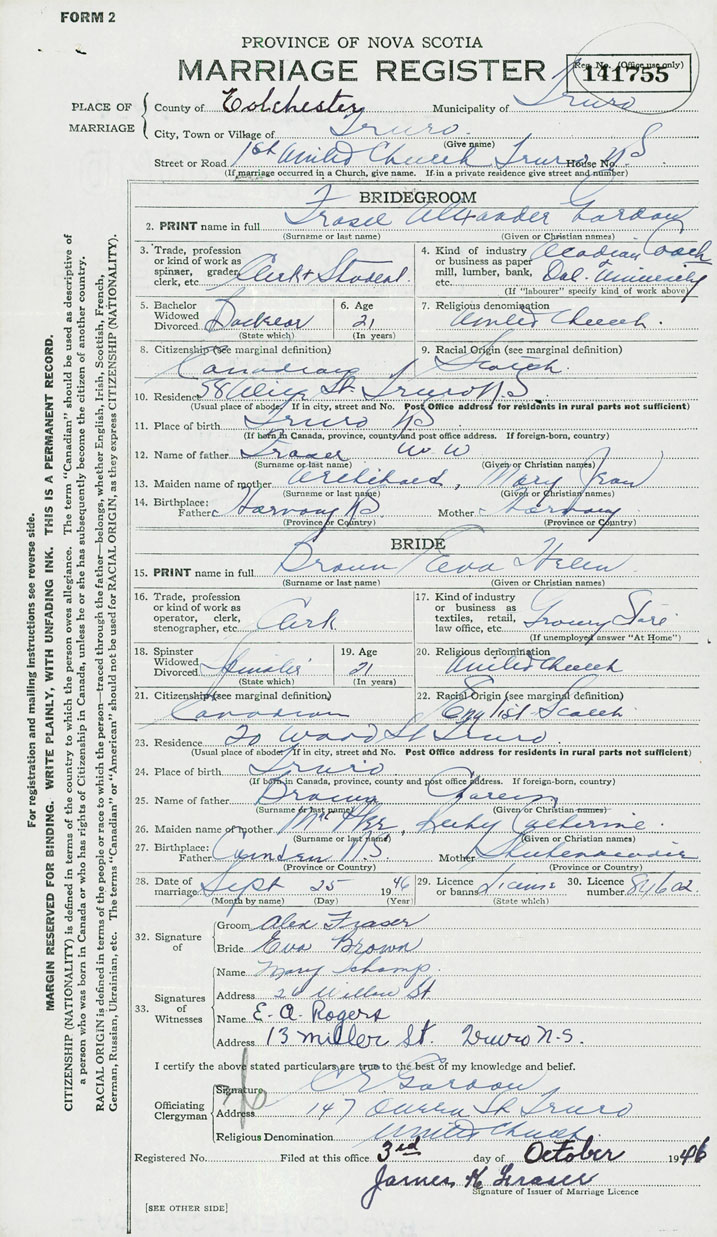 FORM 2
PROVINCE OF NOVA SCOTIA
MARRIAGE REGISTER
Reg. No. (Office use only)
141755
PLACE OF MARRIAGE
County of Colchester Municipality of Truro
City, Town or Village of Truro
(Give name)
Street or Road 1st United Church Truro House No. N S
(If marriage occurred in a Church, give name. If in a private residence give street and number)
BRIDEGROOM
2. PRINT name in full Fraser Alexander Gordon
(Surname or last name) (Given or Christian names)
3. Trade, profession or kind of work as spinner, grader, clerk, etc. Clerk & Student
4. Kind of industry or business as paper mill, lumber, bank, etc. Acadian Coach Dal. University
(If "labourer" specify kind of work above)
5. Bachelor Widowed Divorced Bachelor
(State which)
6. Age 21
(In years)
7. Religious denomination United Church.
8. Citizenship (see marginal definition) Canadian
9. Racial Origin (see marginal definition) Scotch.
10. Residence 58 Alice St. Truro N S
(Usual place of abode. If in city, street and No. Post Office address for residents in rural parts not sufficient)
11. Place of birth Truro N S
(If born in Canada, province, county and post office address. If foreign-born, country)
12. Name of father Fraser W. W
(Surname or last name) (Given or Christian names)
13. Maiden name of mother Archibald, Mary Jean
(Surname or last name) (Given or Christian names)
14. Birthplace: Father N S Mother
(Province or Country) (Province or Country)
BRIDE
15. PRINT name in full Brown Eva Helen
(Surname or last name) (Given or Christian names)
16. Trade, profession or kind of work as operator, clerk, stenographer, etc. Clerk
17. Kind of industry or business as textiles, retail, law office, etc. Grocery Store
(If unemployed answer "At Home")
18. Spinster Widowed Divorced Spinster
(State which)
19. Age 21
(In years)
20. Religious denomination United Church
21. Citizenship (see marginal definition) Canadian
22. Racial Origin (see marginal definition) English Scotch.
23. Residence 20 Wood St Truro
(Usual place of abode. If in city, street and No. Post Office address for residents in rural parts not sufficient)
24. Place of birth Truro
(If born in Canada, province, county and post office address. If foreign-born, country)
25. Name of father Brown
(Surname or last name) (Given or Christian names)
26. Maiden name of mother Catherine
(Surname or last name) (Given or Christian names)
27. Birthplace: Father Camden N S Mother Shubenacadie
(Province or Country) (Province or Country)
28. Date of marriage Sept 25 1946
(Month by name) (Day) (Year)
29. Licence or banns License
(State which)
30. Licence number 84602
32. Signature of
Groom Alex Fraser
Bride Eva Brown
33. Signatures of Witnesses
Name Mary
Address Willow St
Name E. A. Rogers
Address 13 Miller St. Truro N.S.
I certify the above stated particulars are true to the best of my knowledge and belief.
Officiating Clergyman
Signature Gordon
Address 147 Queen St Truro
Religious Denomination United Church
Registered No. Filed at this office 3rd day of October 1946
James H Fraser
Signature of Issuer of Marriage Licence
[SEE OTHER SIDE]
For registration and mailing instructions see reverse side.
MARGIN RESERVED FOR BINDING. WRITE PLAINLY, WITH UNFADING INK. THIS IS A PERMANENT RECORD.
CITIZENSHIP (NATIONALITY) is defined in terms of the country to which the person owes allegiance. The term "Canadian" should be used as descriptive of
a person who was born in Canada or who has rights of Citizenship in Canada, unless he or she has subsequently become the citizen of another country.
RACIAL ORIGIN is defined in terms of the people or race to which the person—traced through the father—belongs, whether English, Irish, Scottish, French,
German, Russian, Ukrainian, etc. The terms "Canadian" or "American" should not be used for RACIAL ORIGIN, as they express CITIZENSHIP (NATIONALITY).